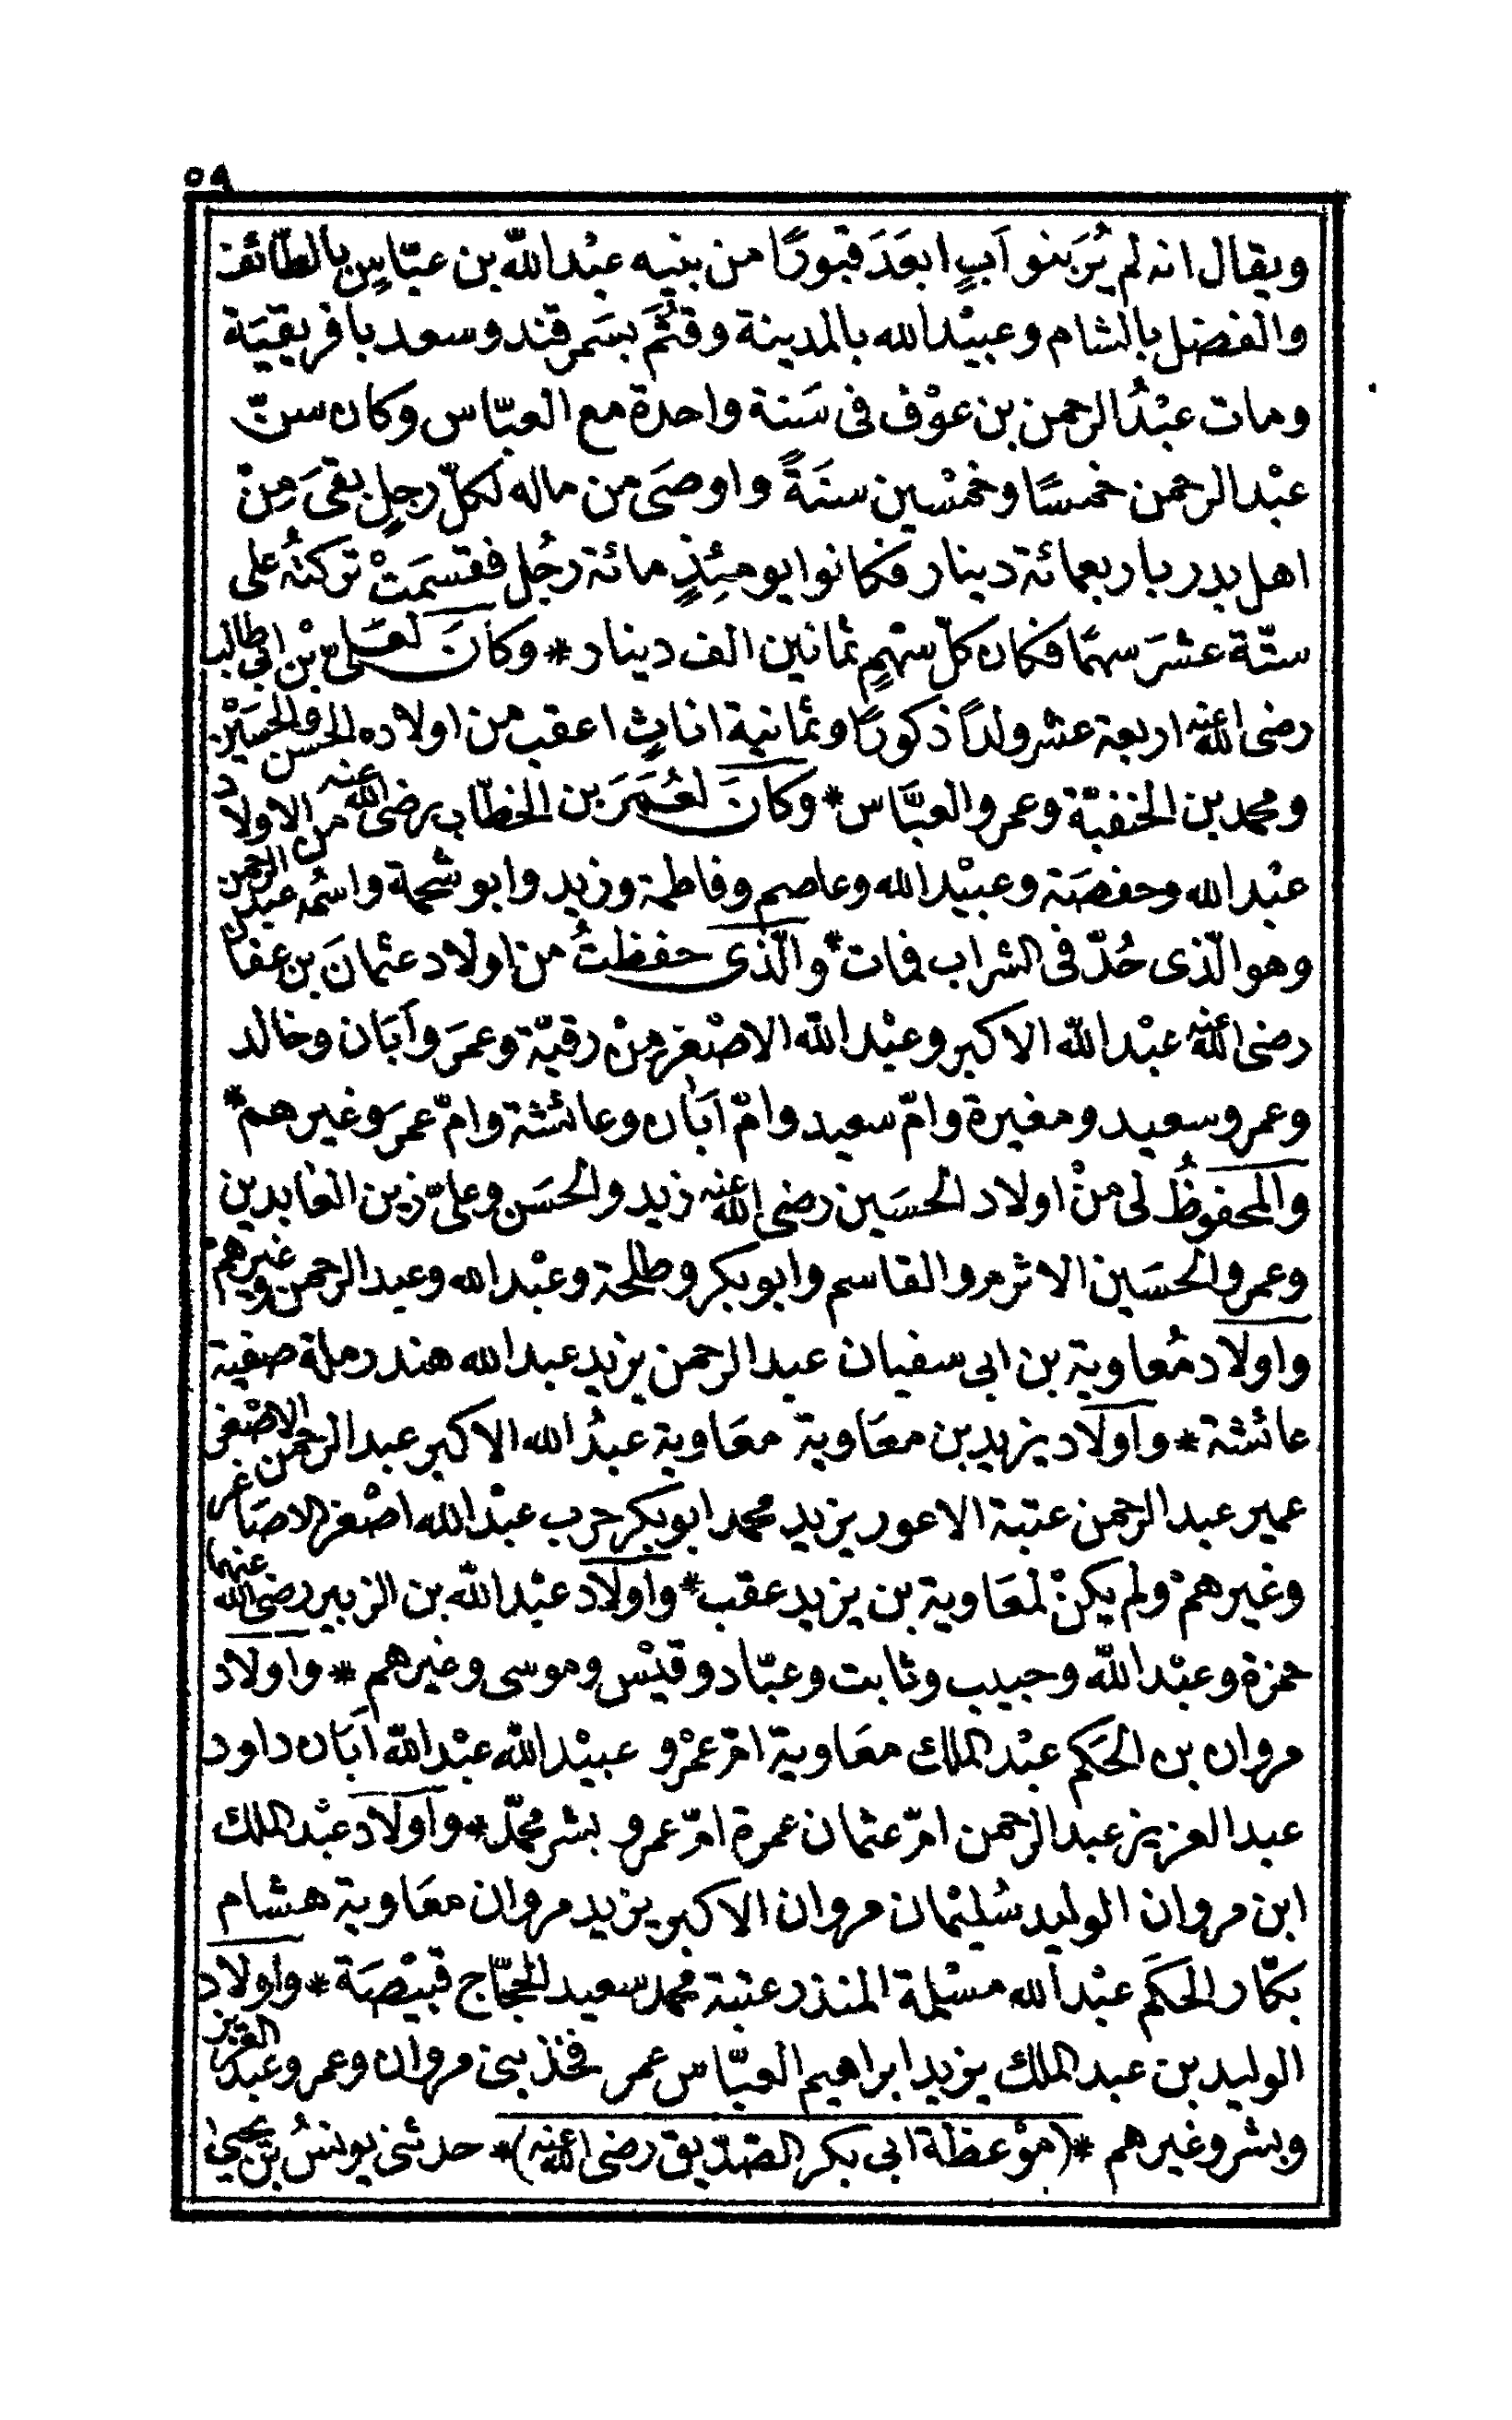 ٥٩
ويقال انه لم يُرَ بنو اَبٍ ابعَدَ قبورًا من بنيه عبْد الله بن عبّاسٍ بالطّائف
والفضل بالشام وعبيْد الله بالمدينة وقثَم بسَمرقند وسعد بافريقيَة
ومات عبْدُ الرحمن بن عوْف فى سَنة واحدة مع العبّاس وكان سنّ
عبْد الرحمن خمسًا وخمْسين سنَةً واوصَى من ماله لكلّ رجلٍ بقىَ مِنْ
اهل بدر باربعمائة دينار فكانوا يومئِذٍ مائة رجُل فقسمَتْ تركتُه على
ستّة عشَر سهمًا فكان كلّ سهْمٍ ثمانين الف دينار * وكانَ لعَلىّ بْن ابى طالب
رضى الله عنه اربعة عشر ولدًا ذكورًا وثمانية اناثٍ اعقب من اولاده الحسن والحسَيْن
ومحمد بن الحنفيّة وعمر والعبَّاس * وكانَ لعُمَرَ بن الخطّاب رضى الله عنه من الاولاد
عبْد الله وحفصَة وعبيْد الله وعاصم وفاطمة وزيد وابو شحمة واسمُه عبد الرحمن
وهو الّذى حُدّ فى الشراب فمات * والّذى حفظتُ من اولاد عثمانَ بن عفان
رضى الله عنه عبْد الله الاكبر وعبْد الله الاصْغر مِنْ رقيّة وعمَر واَبَان وخالد
وعمرو سعيد ومغيرة وامّ سعيد وامّ اَبَان وعائشة وامّ عمَر وغيرهم *
والمحفوظُ لى منْ اولاد الحسَين رضى الله عنه زيد والحسَن وعلىّ زين العابدين
وعمر والحسَين الاثرم والقاسم وابو بكر وطلحة وعبْد الله وعبد الرحمن وغيرهم
واولاد مُعاوية بن ابى سفيان عبد الرحمن يزيد عبد الله هند رملة صفية
عائشة * واولاد يزيد بن معَاوية معَاوية عبدُ الله الاكبر عبد الرحمن الاصْغر
عمير عبد الرحمن عتبة الاعور يزيد محمد ابو بكر حرب عبْد الله اصْغر الاصَاغر
وغيرهمْ ولم يكنْ لمعَاوية بن يزيد عقب * واولاد عبْد الله بن الزبير رضى الله عنهما
حمزة وعبْد الله وحبيب وثابت وعبّاد وقيْس وموسى وغيرهم * واولاد
مروان بن الحَكم عبْد الملك معَاوية امّ عمْرو عبيْد الله عبْد الله اَبَان داود
عبد العزيز عبد الرحمن امّ عثمان عمرة امّ عمرو بشر محمّد * واولاد عبْد الملك
ابن مروان الوليد سُليْمان مروان الاكبر يزيد مروان معَاوية هشام
بكّار الحكَم عبْد الله مسْلمة المنذر عنبة محمد سعيد الحجّاج قبيْصَة * واولاد
الوليد بن عبد الملك يزيد ابراهيم العبّاس عمر فخذ بنى مروان وعمر وعبد العزيز
وبشر وغيرهم * (موْعظة ابى بكر الصّدّيق رضى الله عنه) * حدثنى يونسُ بْن يحيىٰ